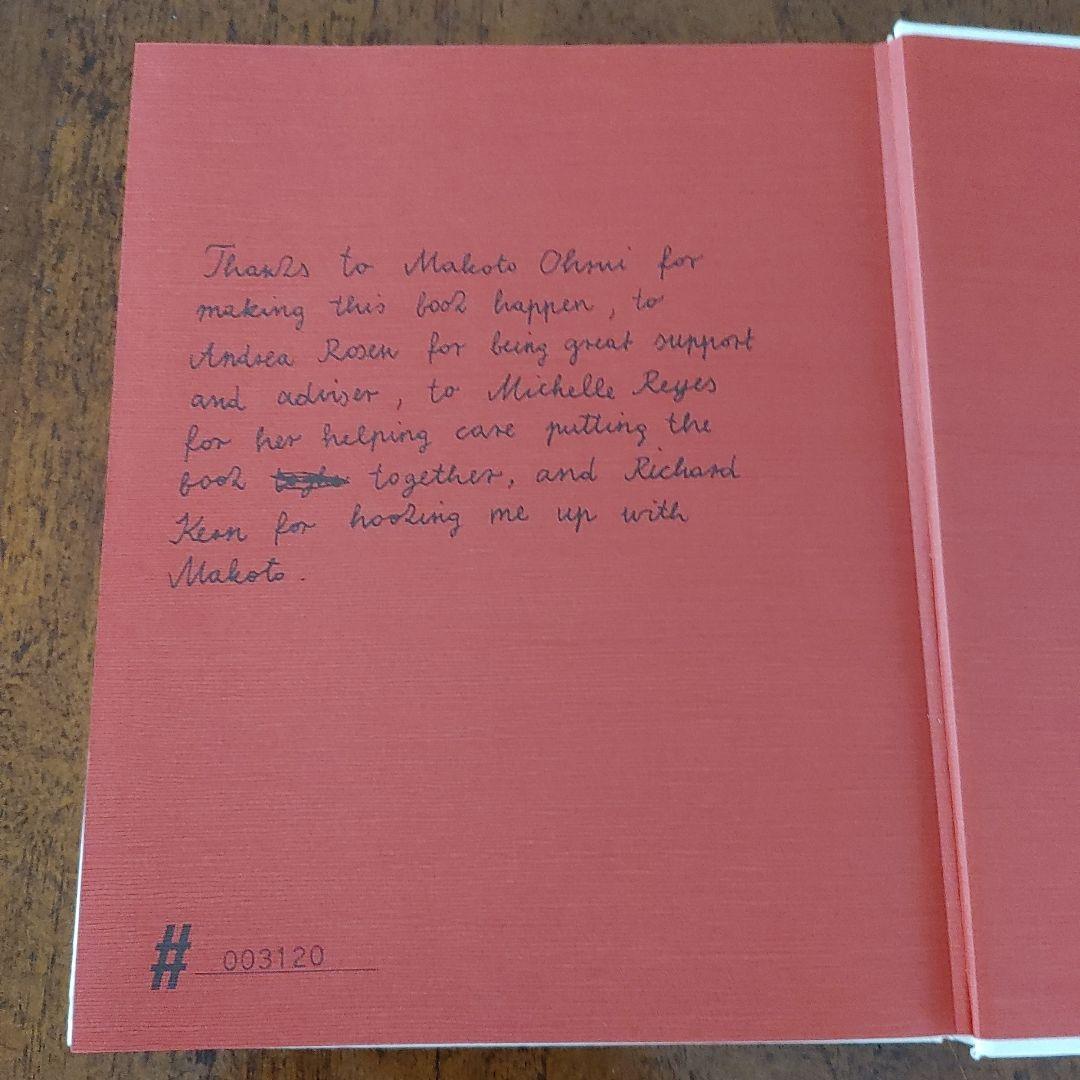 Thanks to Makoto Ohrui for
making this book happen, to
Andrea Rosen for being great support
and adviser, to Michelle Reyes
for her helping care putting the
book together, and Richard
Kern for hooking me up with
Makoto.
# 003120